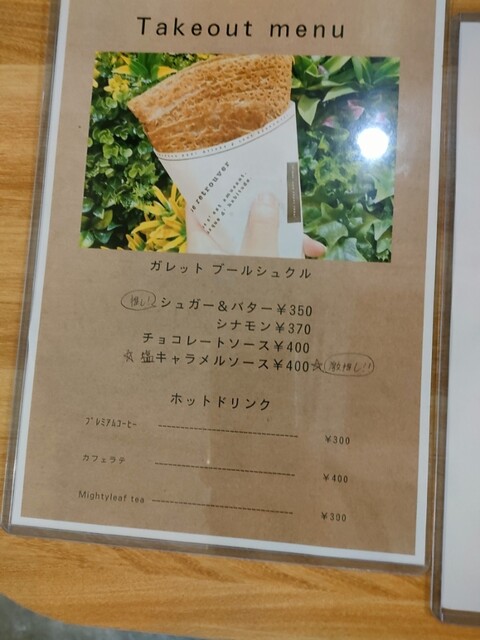 Takeout menu
retrouver
ガレット ブールシュクル
推し!! シュガー&バター¥350
シナモン¥370
チョコレートソース¥400
☆塩キャラメルソース¥400☆激推し!!
ホットドリンク
プレミアムコーヒー ¥300
カフェラテ ¥400
Mightyleaf tea ¥300